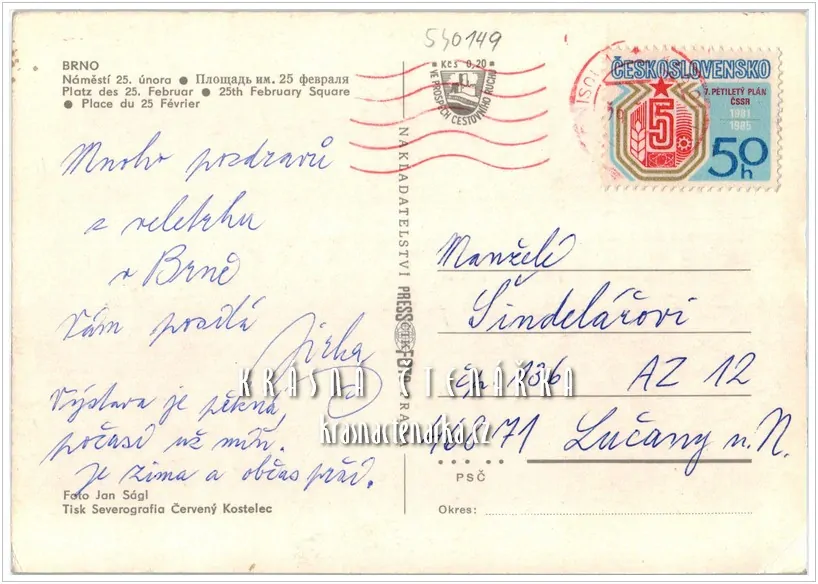 540149
BRNO
Náměstí 25. února ● Площадь им. 25 февраля
Platz des 25. Februar ● 25th February Square
● Place du 25 Février
Kčs 0,20
VE PROSPĚCH CESTOVNÍHO RUCHU
ČESKOSLOVENSKO
7. PĚTILETÝ PLÁN
ČSSR
1981
1985
5
50 h
Mnoho pozdravů
z veletrhu
v Brně
Vám posílá
Jirka
Výstava je pěkná,
počasí už míň.
je zima a občas prší.
NAKLADATELSTVÍ PRESSFOTO
ČTK
Manželé
Šindelářovi
čp 136 AZ 12
468 71 Lučany n. N.
KRÁSNÁ ČTENÁŘKA
krasnactenarka.cz
PSČ
Okres:
Foto Jan Ságl
Tisk Severografia Červený Kostelec